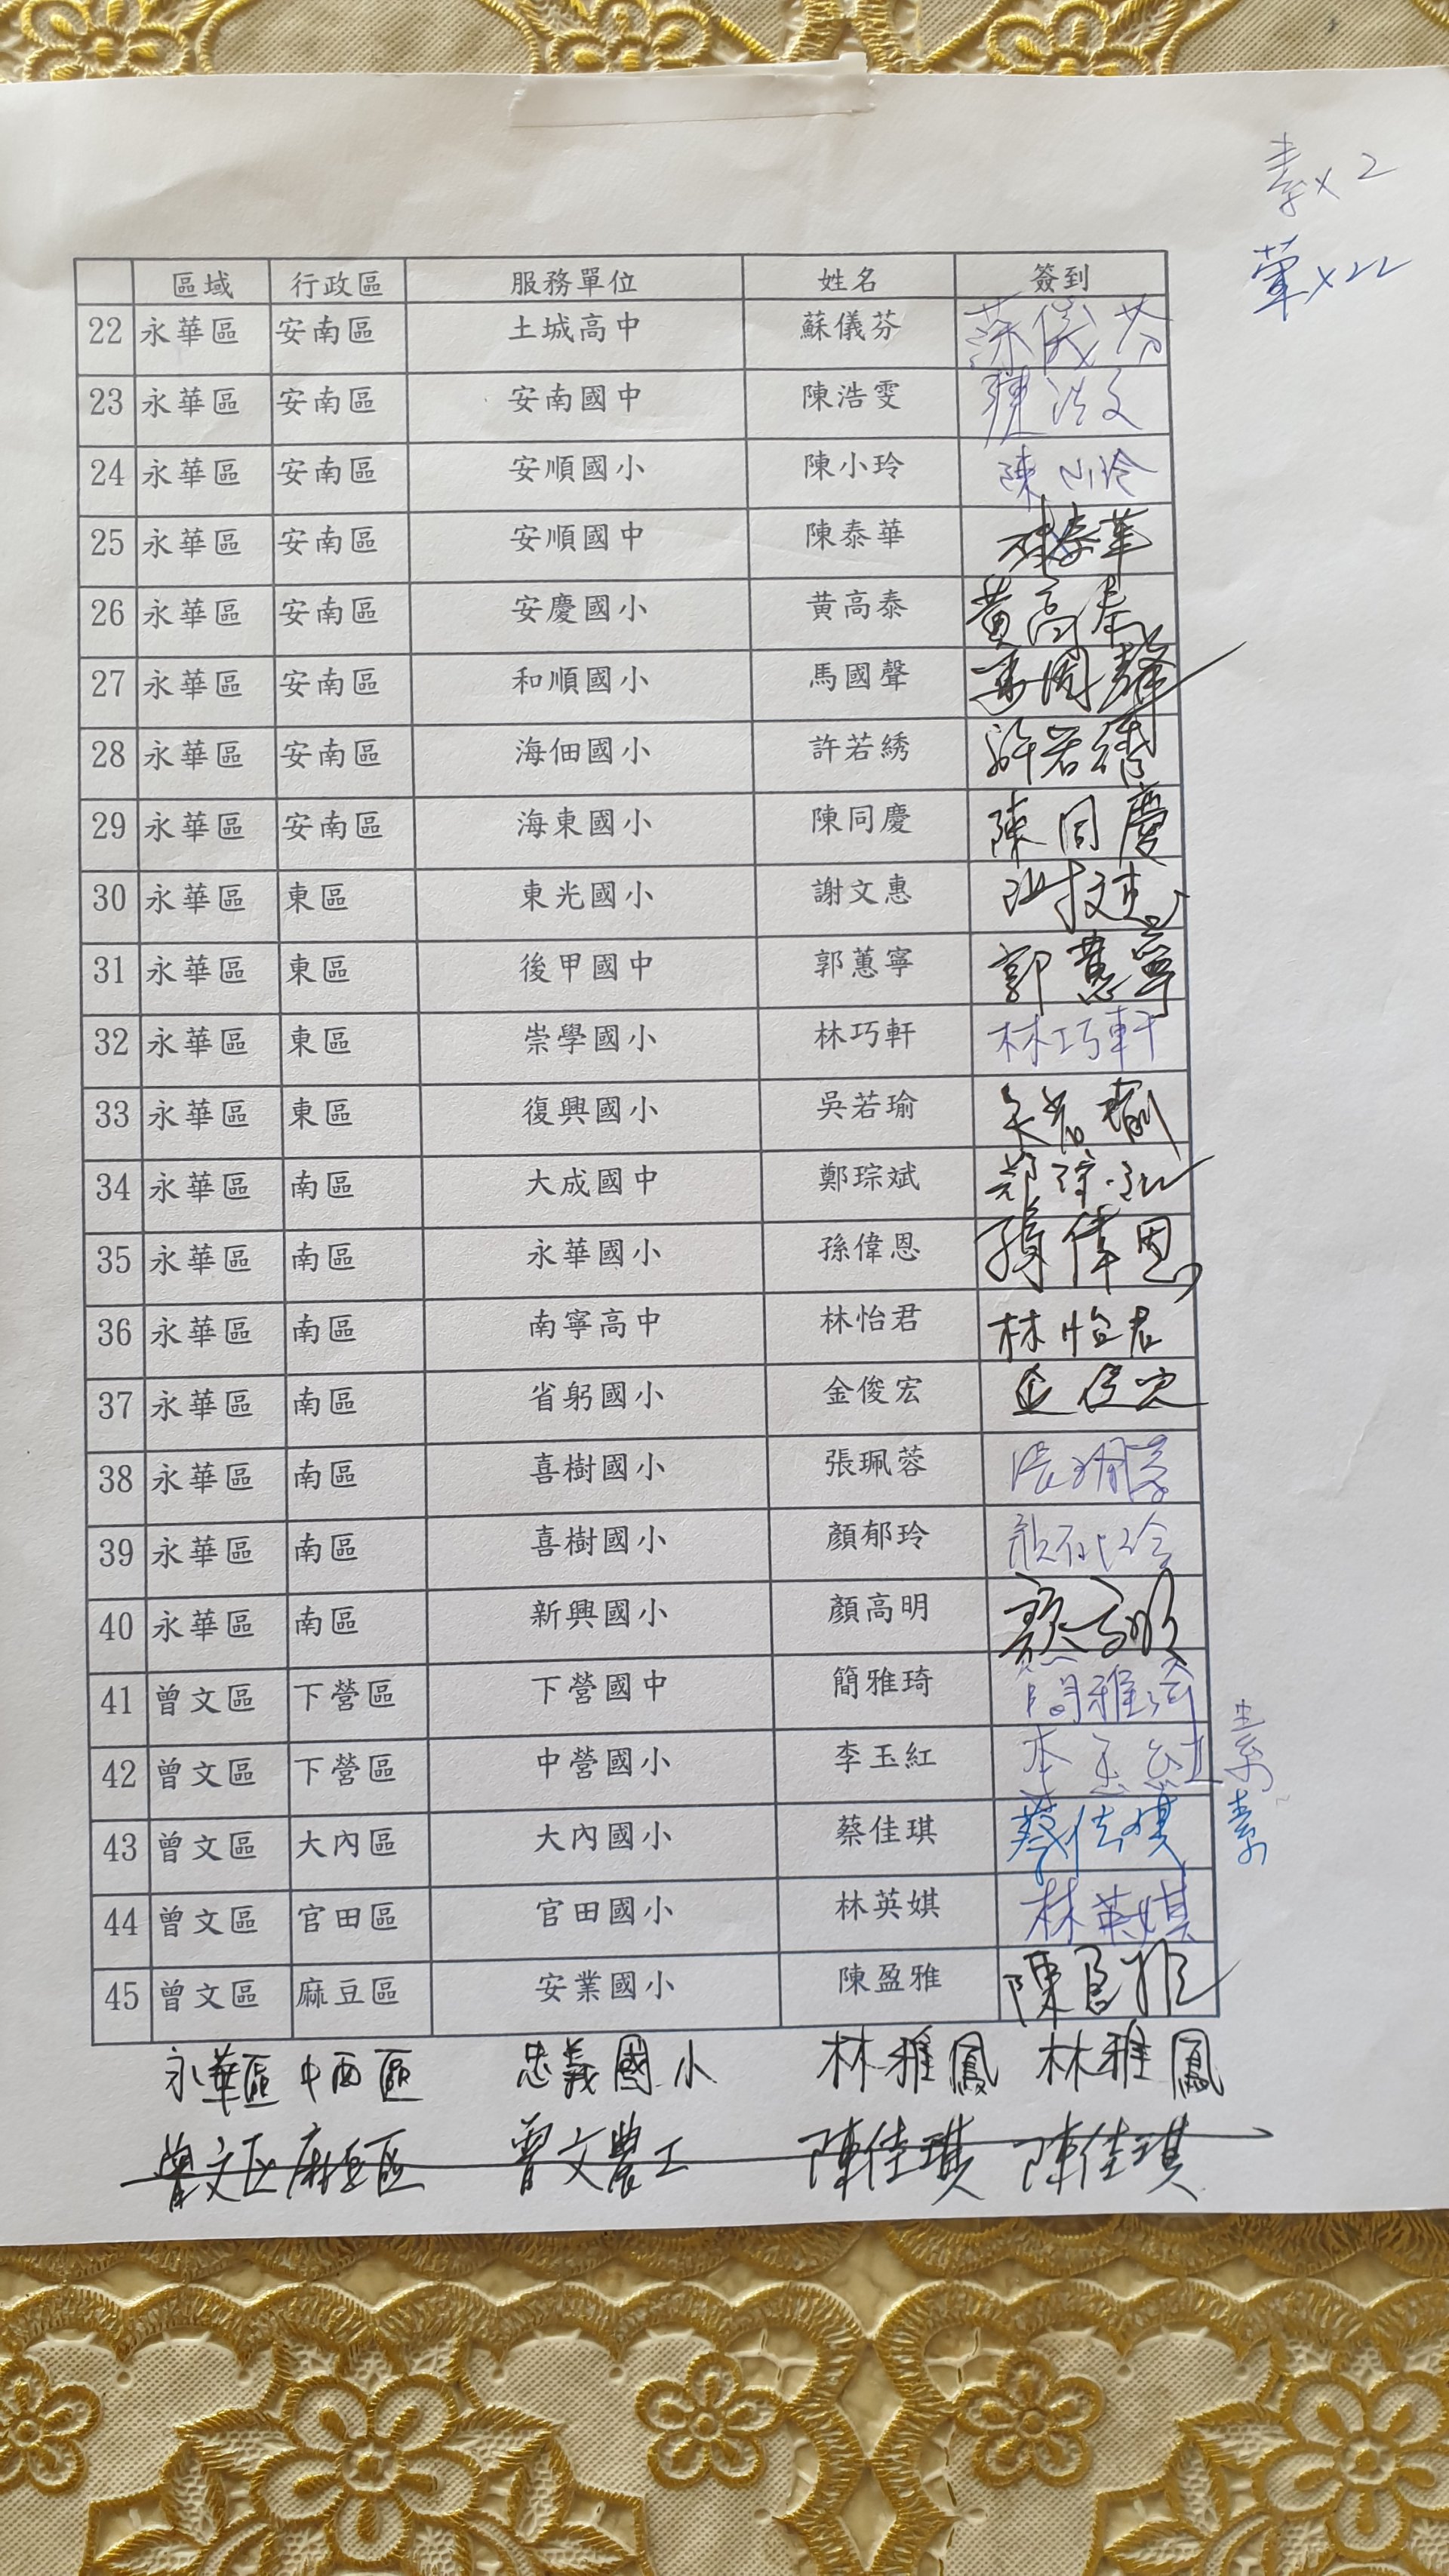 素x2
葷x22
區域 行政區 服務單位 姓名 簽到
22 永華區 安南區 土城高中 蘇儀芬 蘇儀芬
23 永華區 安南區 安南國中 陳浩雯 陳浩文
24 永華區 安南區 安順國小 陳小玲 陳小玲
25 永華區 安南區 安順國中 陳泰華 陳泰華
26 永華區 安南區 安慶國小 黃高泰 黃高泰
27 永華區 安南區 和順國小 馬國聲 馬國聲
28 永華區 安南區 海佃國小 許若綉 許若繡
29 永華區 安南區 海東國小 陳同慶 陳同慶
30 永華區 東區 東光國小 謝文惠 謝文惠
31 永華區 東區 後甲國中 郭蕙寧 郭蕙寧
32 永華區 東區 崇學國小 林巧軒 林巧軒
33 永華區 東區 復興國小 吳若瑜 吳若瑜
34 永華區 南區 大成國中 鄭琮斌 鄭琮斌
35 永華區 南區 永華國小 孫偉恩 孫偉恩
36 永華區 南區 南寧高中 林怡君 林怡君
37 永華區 南區 省躬國小 金俊宏 金俊宏
38 永華區 南區 喜樹國小 張珮蓉 張珮蓉
39 永華區 南區 喜樹國小 顏郁玲 顏郁玲
40 永華區 南區 新興國小 顏高明 顏高明
41 曾文區 下營區 下營國中 簡雅琦 簡雅琦
42 曾文區 下營區 中營國小 李玉紅 李玉紅 素
43 曾文區 大內區 大內國小 蔡佳琪 蔡佳琪 素
44 曾文區 官田區 官田國小 林英娸 林英娸
45 曾文區 麻豆區 安業國小 陳盈雅 陳盈雅
永華區 中西區 忠義國小 林雅鳳 林雅鳳
曾文區 麻豆區 曾文農工 陳佳琪 陳佳琪